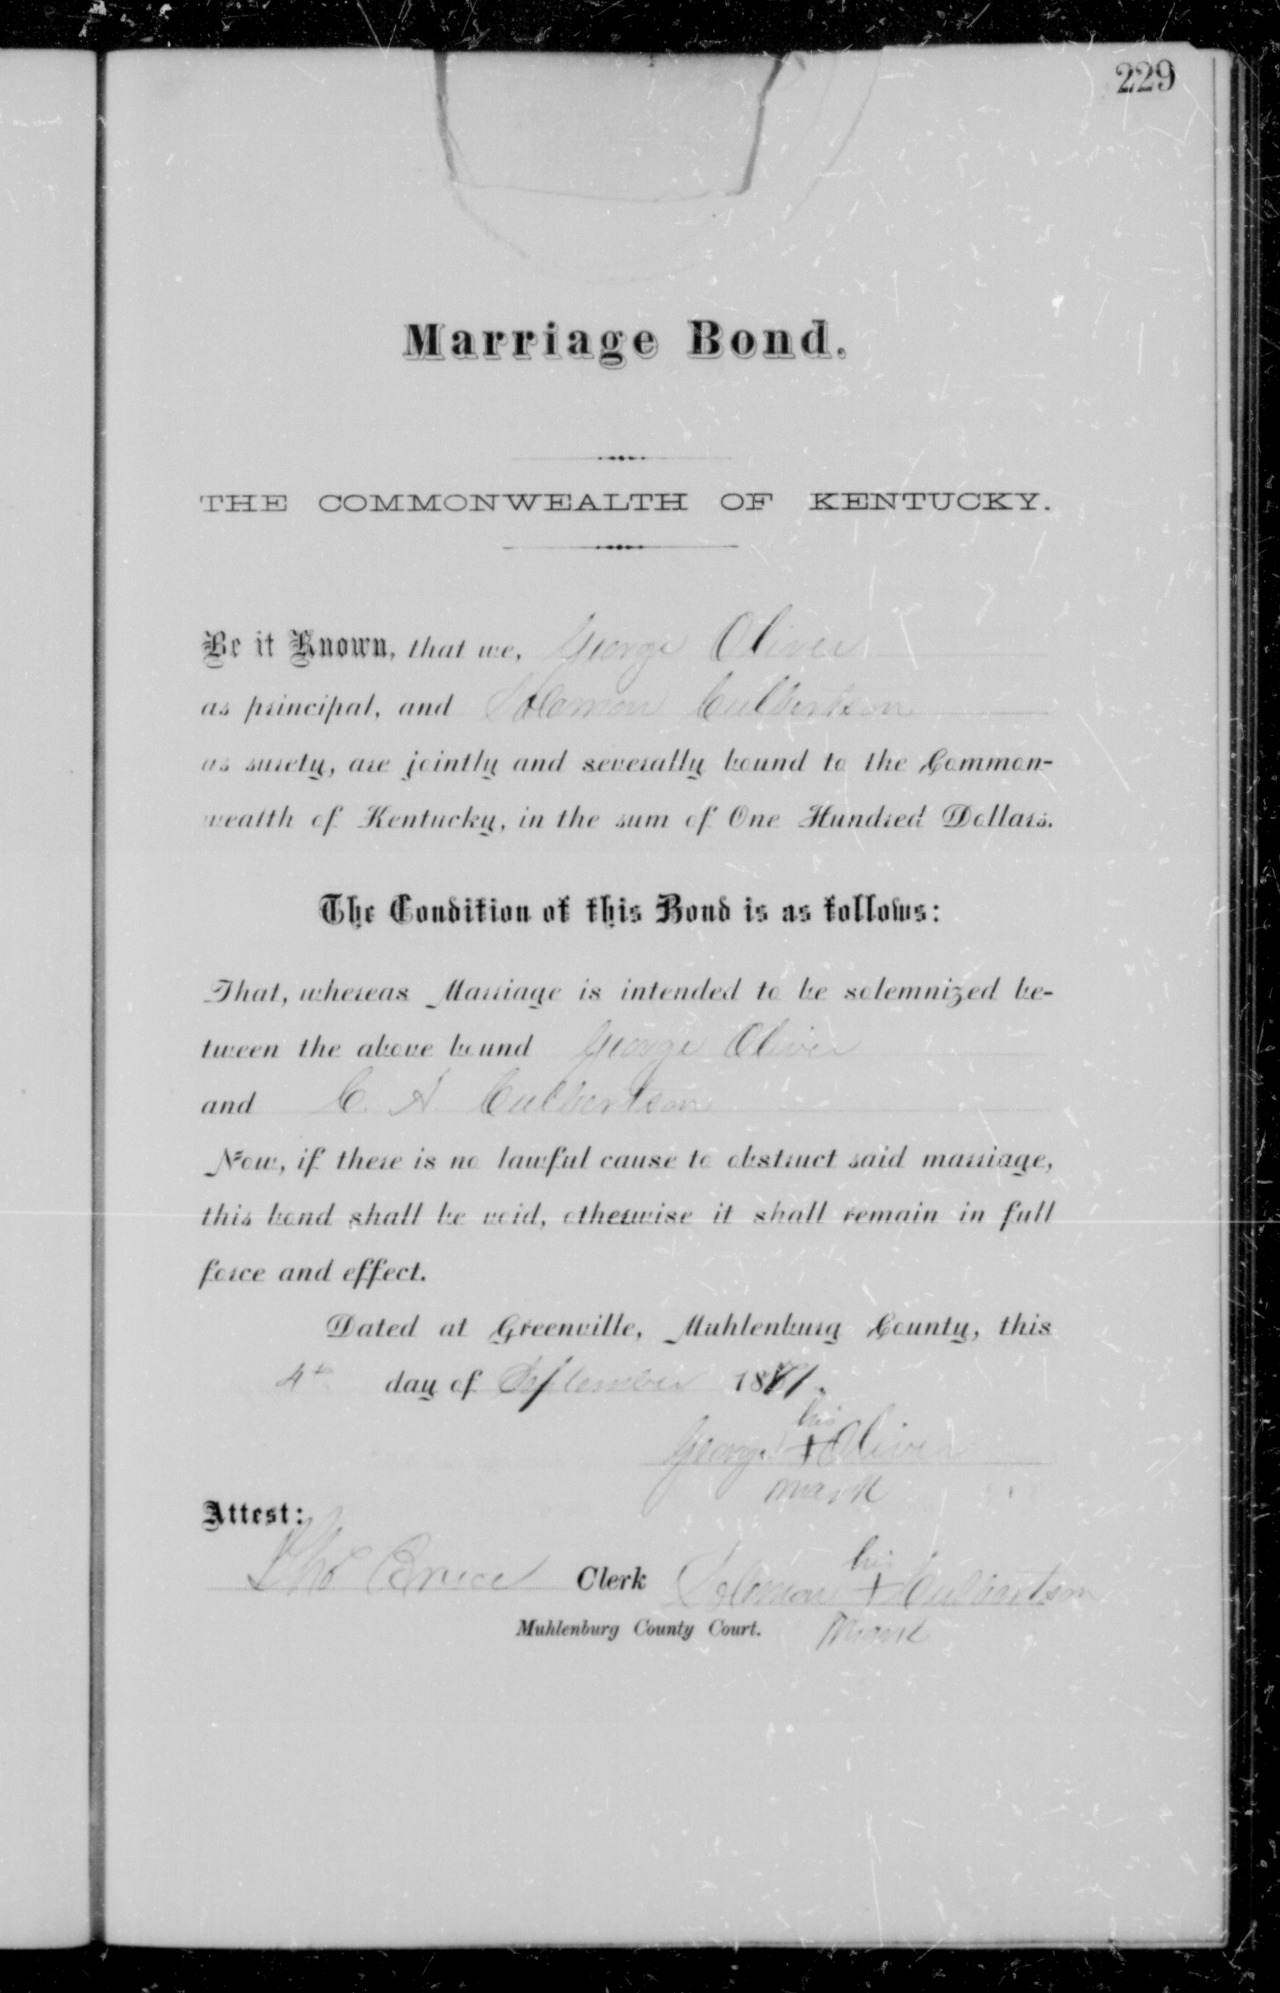 229
Marriage Bond.
THE COMMONWEALTH OF KENTUCKY.
Be it Known, that we, George Oliver
as principal, and Solomon Culbertson
as surety, are jointly and severally bound to the Common-
wealth of Kentucky, in the sum of One Hundred Dollars.
The Condition of this Bond is as follows:
That, whereas Marriage is intended to be solemnized be-
tween the above bound George Oliver
and C. A. Culbertson
Now, if there is no lawful cause to obstruct said marriage,
this bond shall be void, otherwise it shall remain in full
force and effect.
Dated at Greenville, Muhlenburg County, this
4th day of September 1881.
his
George + Oliver
mark
Attest:
his
Tho Bruce Clerk Solomon + Culbertson
Muhlenburg County Court. Mark